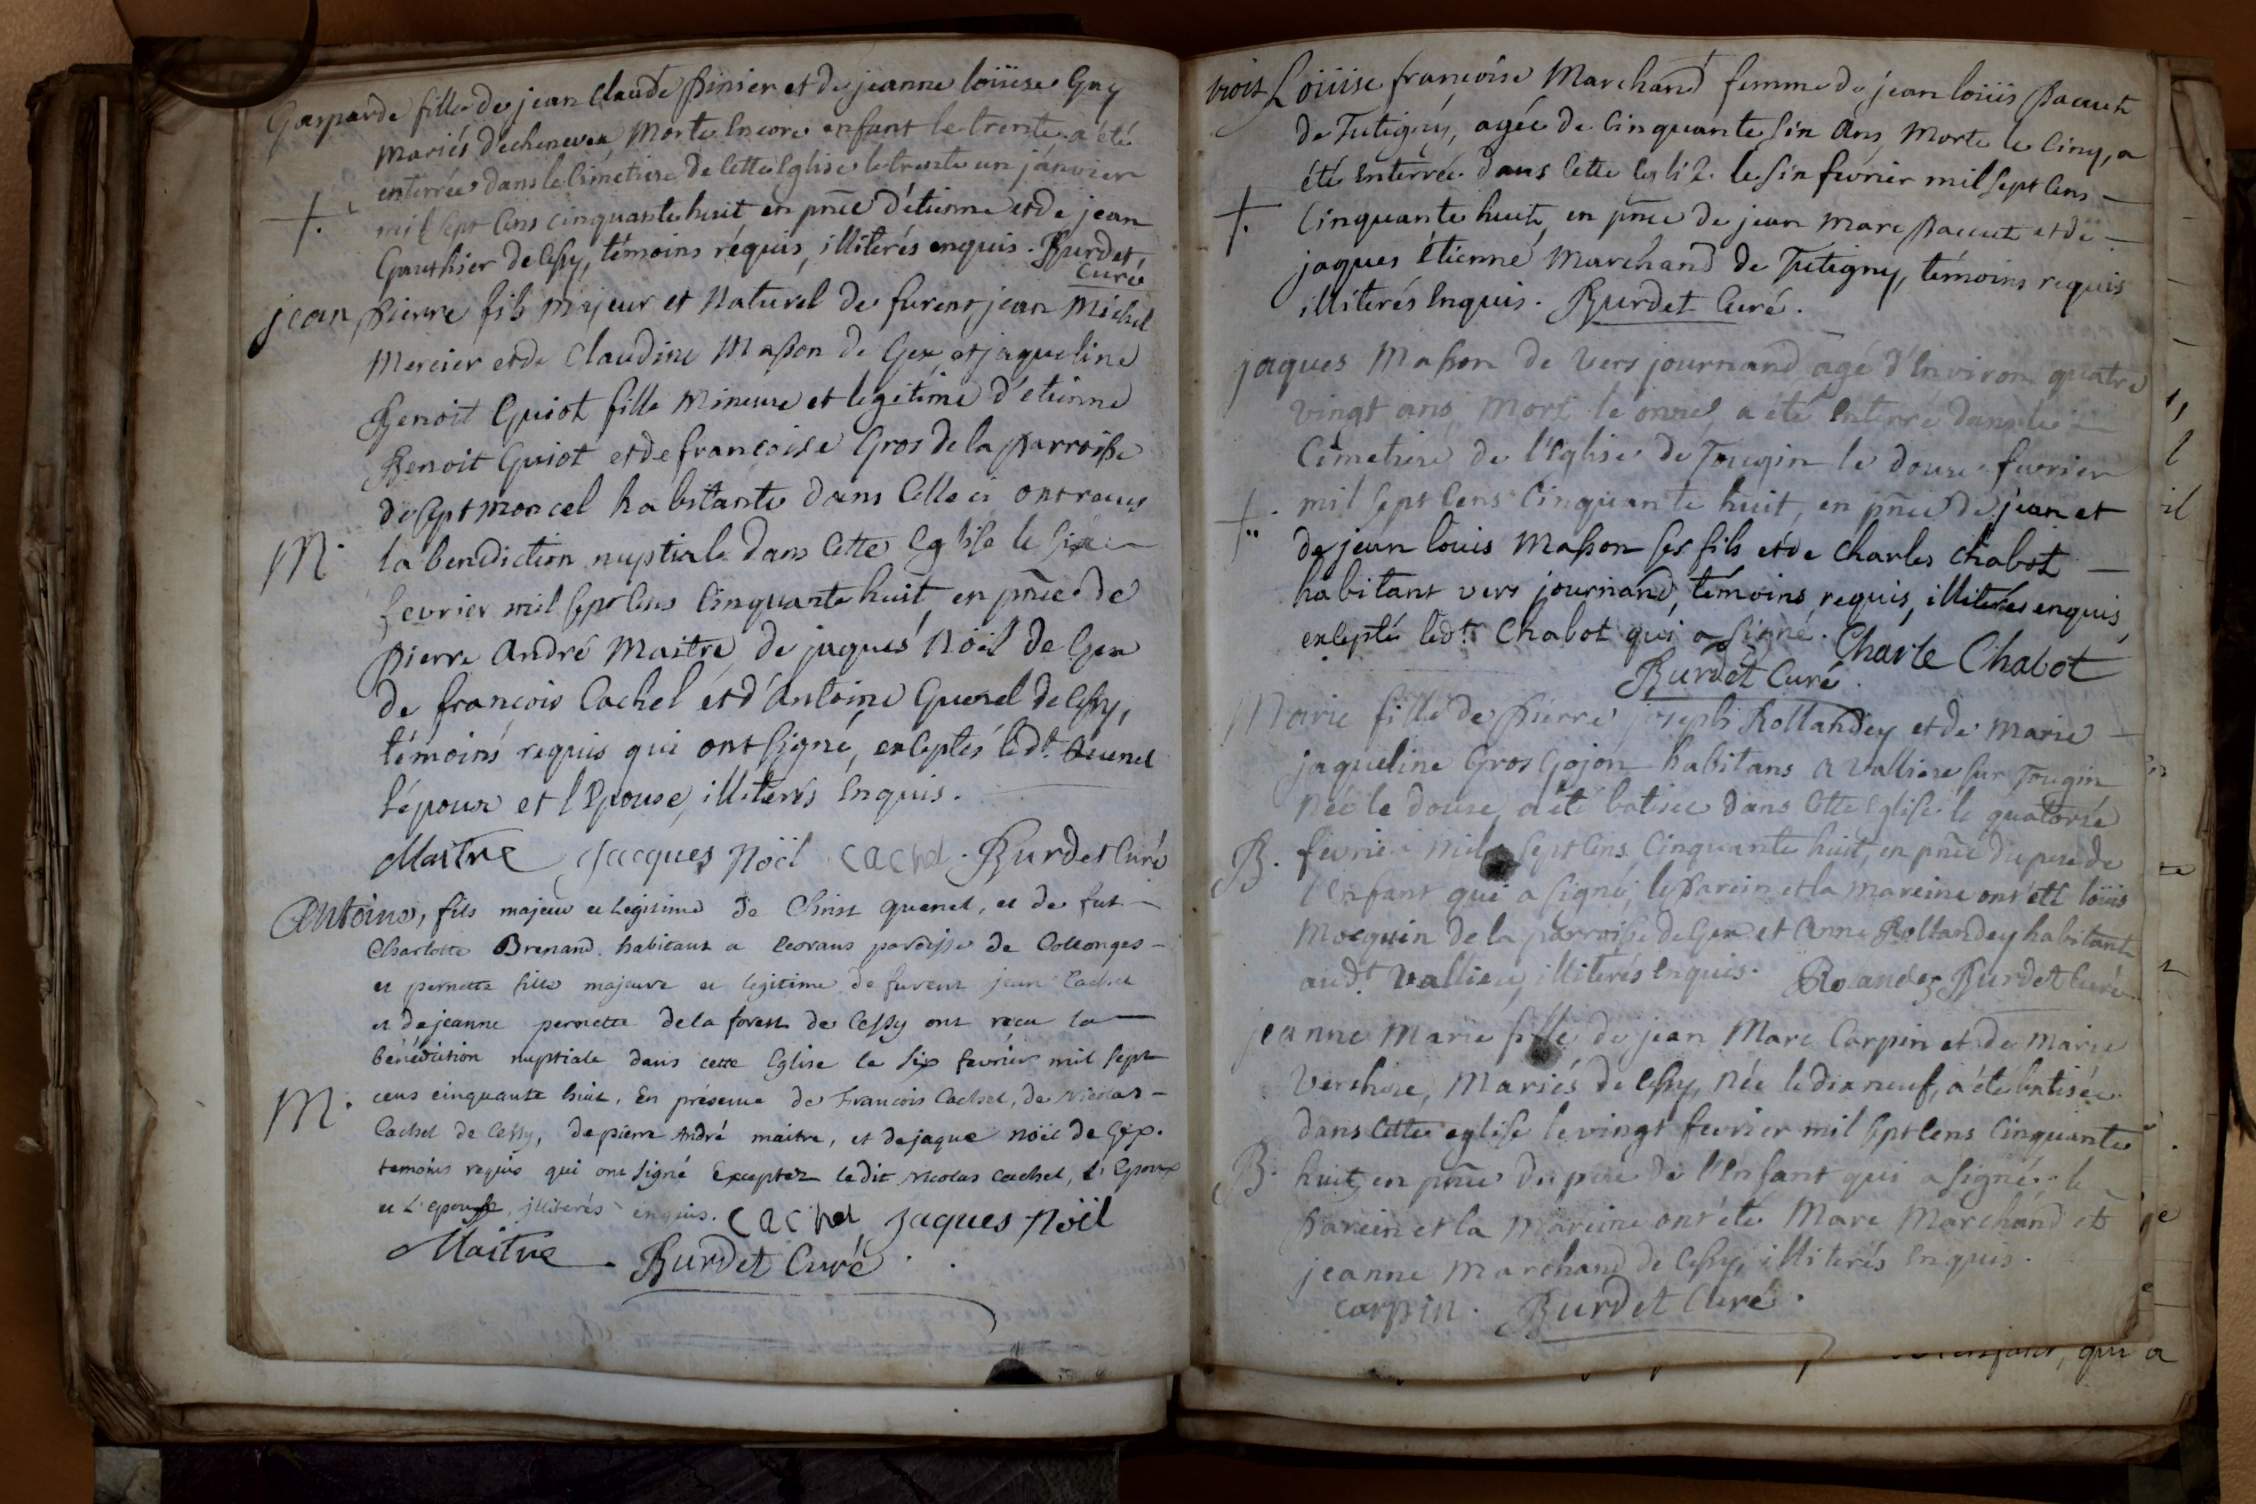 Gasparde fille de jean Claude Pinier et de jeanne loüise Guy
mariés d'echenevex, morte encore enfant le trente a été
enterrée dans le cimetiere de cette Eglise le trente un janvier
mil sept cens cinquante huit en pñce d'étienne et de jean
Gauthier de Cessy, témoins réquis, illiterés enquis. Burdet,
Curé
jean pierre fils majeur et naturel de furent jean Michel
Mercier et de Claudine Masson de Gex et jaqueline
Benoit Guiot fille mineure et legitime d'etienne
Benoit Guiot et de françoise Gros de la parroisse
de septmoncel habitante dans celle ci ont reçus
M. la benediction nuptiale dans cette Eglise le six
fevrier mil sept cens cinquante huit, en pñce de
pierre André Maitre, de jaques Noël de Gex
de françois Cachel et d'Antoine Quenel de Cessy,
témoins requis qui ont signé, exceptés led.t Quenel
l'époux et l'Epouse, illiterés enquis.
Maitre Jacques Noël Cachel. Burdet Curé
Antoine, fils majeur et legitime de Christ quenel, et de fut
Charlotte Brenand habitant a Ecorans paroisse de Collonges
et pernette fille majeure et legitime de furent jean Cachel
et de jeanne pernette de la forest de Cessy ont reçu la
bénédiction nuptiale dans cette Eglise le six fevrier mil sept
M. cens cinquante huit, En présence de François Cachel, de Nicolas
Cachel de Cessy, de pierre André maitre, et de jaque noël de Gex.
temoins requis qui ont signé Exceptez ledit Nicolas Cachel, l'Epoux
et L'epouse, illiterés enquis. Cachel Jaques Noël
Maitre Burdet Curé
Loüise françoise Marchand femme de jean loüis Pacut
de Tutigny, agée de cinquante six ans, morte le cinq, a
été enterrée dans cette Eglise le six février mil sept cens
cinquante huit, en pñce de jean marc Pacut et de
jaques étienne Marchand de Tutigny, témoins requis
illiterés enquis. Burdet Curé.
jaques Masson de vers journand agé d'environ quatre
vingt ans, mort le onze, a été enterré dans le
Cimetiere de l'Eglise de Tougin le douze fevrier
mil sept cens cinquante huit, en pñce de jean et
de jean louis Masson ses fils et de Charles Chabot
habitant vers journand, témoins requis, illiterés enquis,
excepté led.t Chabot qui a signé. Charle Chabot
Burdet Curé
Marie fille de pierre joseph Rollandey et de marie
jaqueline Gros Gojon habitans a valliere sur Tougin
née le douze, a été batisée dans cette Eglise le quatorze
B. fevrier mil sept cens cinquante huit, en pñce du pere de
l'Enfant qui a signé; le parein et la mareine ont été loüis
Mocquin de la parroisse de Gex et Anne Rollandey habitante
aud.t Valliere, illiterés enquis. Rolandez Burdet Curé
jeanne Marie fille de jean Marc Carpin et de marie
Verchere, Mariés de Cessy, née le dix neuf, a été batisée
dans cette eglise le vingt fevrier mil sept cens cinquante
B. huit, en pñce du pere de l'Enfant qui a signé. le
parein et la mareine ont été Marc Marchand et
jeanne Marchand de Cessy, illiterés enquis.
Carpin. Burdet Curé.